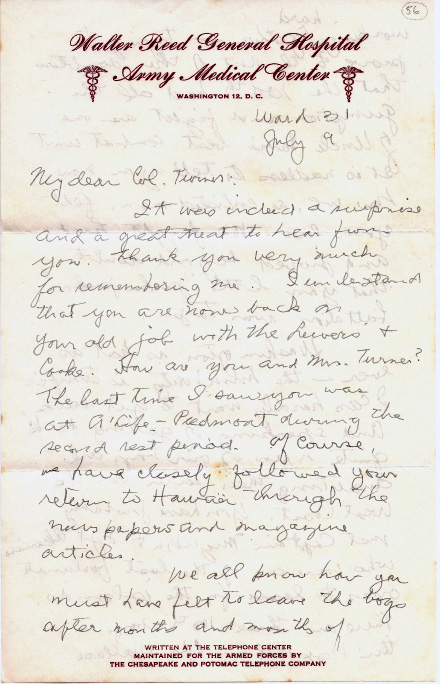 56
Walter Reed General Hospital
Army Medical Center
WASHINGTON 12, D. C.
Ward 31
July 9
My dear Col. Turner:
It was indeed a surprise
and a great treat to hear from
you. Thank you very much
for remembering me. I understand
that you are now back on
your old job with the Lewers +
Cooke. How are you and Mrs. Turner?
The last time I saw you was
at A'Life - Piedmont during the
second rest period. Of course,
we have closely followed your
return to Hawaii through the
newspapers and magazine
articles.
We all know how you
must have felt to leave the boys
after months and months of
WRITTEN AT THE TELEPHONE CENTER
MAINTAINED FOR THE ARMED FORCES BY
THE CHESAPEAKE AND POTOMAC TELEPHONE COMPANY